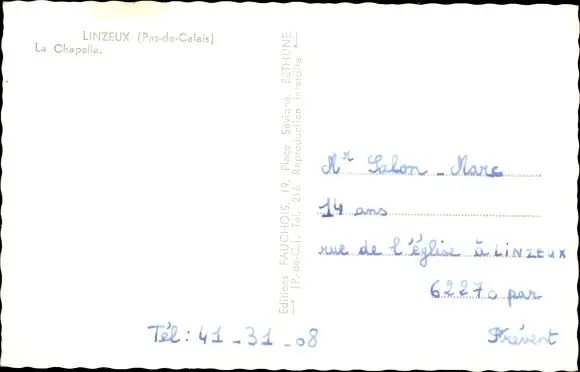 LINZEUX (Pas-de-Calais)
La Chapelle.
Editions FAUCHOIS, 19, Place Sévigné, BETHUNE
(P.-de-C.). Tél. 216 Reproduction interdite.
Mr Salon - Marc
14 ans
rue de l'église à LINZEUX
62270 par
Frévent
Tél : 41 - 31 - 08